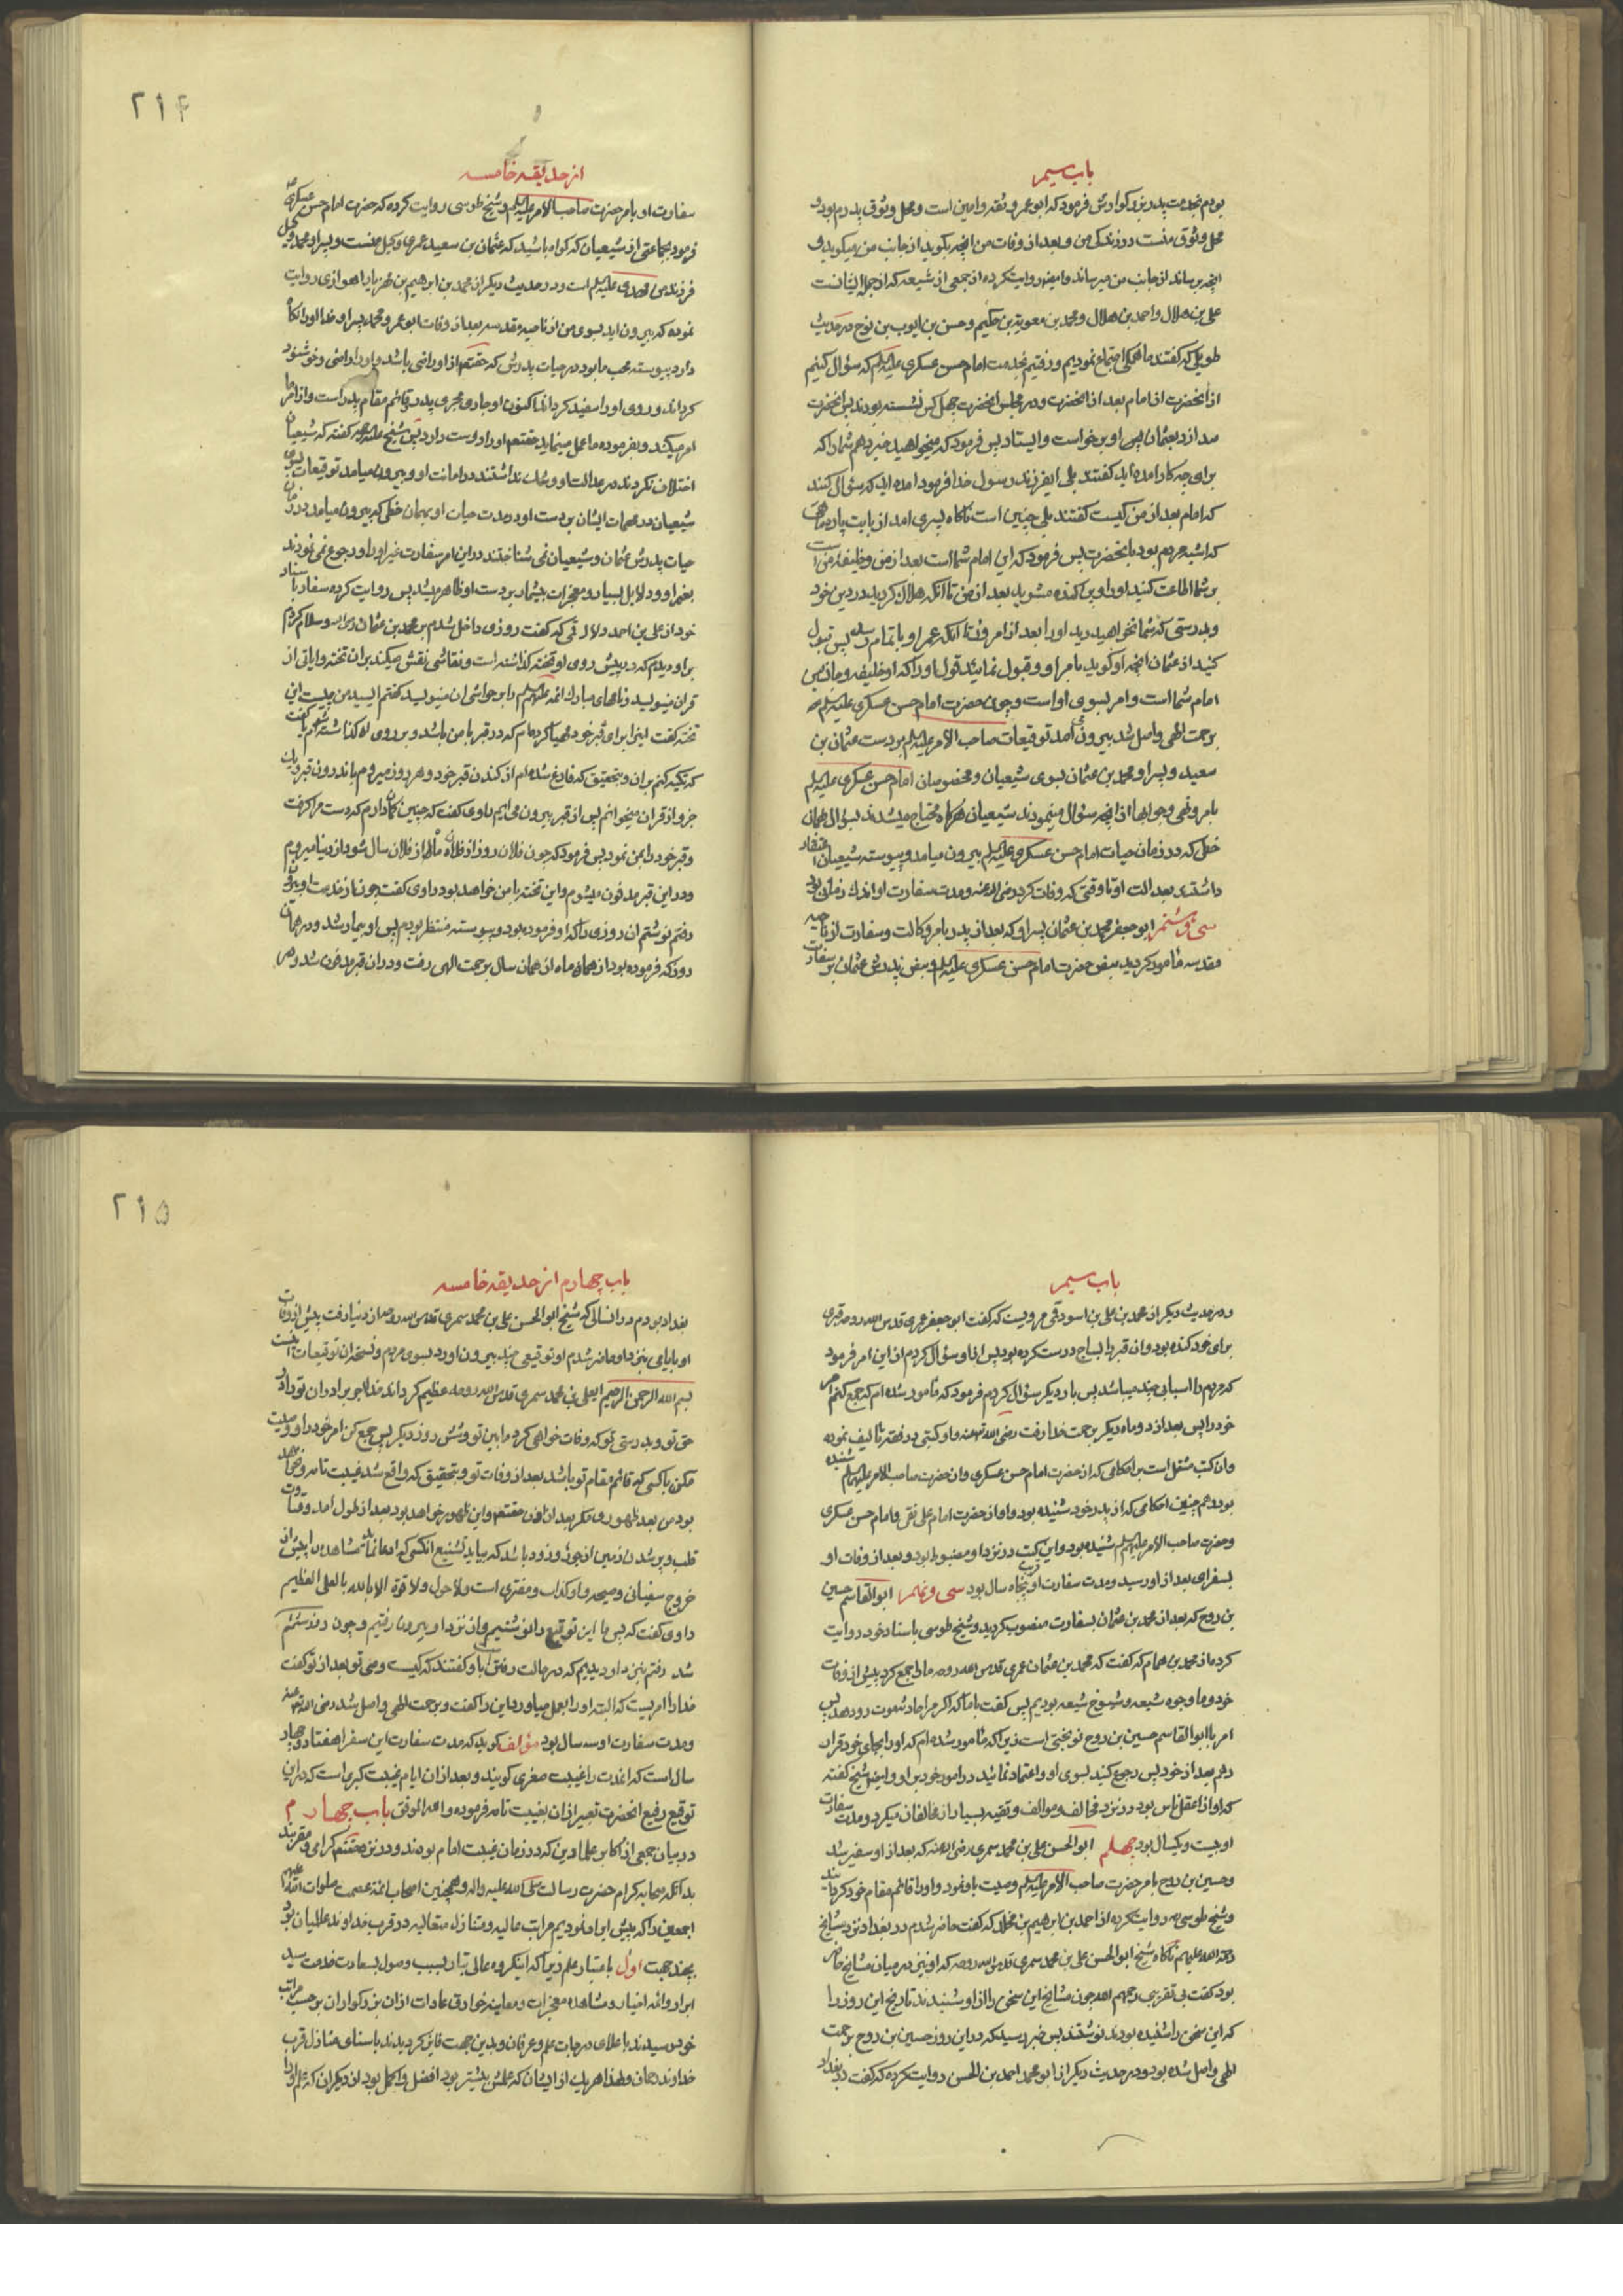 باب سیم
بودم بخدمت پدر بزرگوارش فرمود که ابو عمرو ثقه و امین است و محل وثوق پدرم بود و
محل وثوق منست در زندگی من و بعد از وفات من انچه بگوید از جانب من میگوید و
انچه برساند از جانب من میرساند و ایضا روایت کرده از جمعی از شیعه که از جمله ایشانست
علی بن هلال و احمد بن هلال و محمد بن معویة بن حکیم و حسن بن ایوب بن نوح در حدیث
طویلی که گفتند ما همگی اجتماع نمودیم و رفتیم بخدمت امام حسن عسکری علیه السلم که سؤال کنیم
از انحضرت از امام بعد از انحضرت و در مجلس انحضرت چهل کس نشسته بودند پس انحضرت
صدا زد بعثمان پس او برخواست و ایستاد پس فرمود که میخواهید خبر دهم شما را که
برای چه کار امده اید گفتند بلی ایفرزند رسول خدا فرمود امده اید که سؤال کنید
که امام بعد از من کیست گفتند بلی چنین است ناگاه پسری امد از بابت پاره ماهی
که اشبه مردم بود بانحضرت پس فرمود که این امام شما است بعد از من و خلیفه من است
بر شما اطاعت کنید او را و پراکنده مشوید بعد از من تا انکه هلاک گردید در دین خود
و بدرستی که شما نخواهید دید او را بعد از امروز تا انکه عمر او باتمام رسد پس قبول
کنید از عثمان انچه او گوید بامر او و قبول نمائید قول او را که او خلیفه
امام شما است و امر بسوی او است و چون حضرت امام حسن عسکری علیه السلم
برحمت الهی واصل شد بیرون می آمد توقیعات صاحب الامر علیه السلم بر دست عثمان بن
سعید و پسر او محمد بن عثمان بسوی شیعیان و مخصوصان امام حسن عسکری علیه السلم
بامر و نهی و جوابها از انچه سؤال مینمودند شیعیان هرگاه محتاج میشدند بسؤال بهمان
خطی که در زمان حیات امام حسن عسکری علیه السلم بیرون میامد و پیوسته شیعیان اعتقاد
داشتند بعدالت او تا وقتی که وفات کرد رضی الله عنه و مدت سفارت او اندک زمانی بود
سی و هشتم ابو جعفر محمد بن عثمان پسر او که بعد از پدر بامر وکالت و سفارت از ناحیه
مقدسه مامور گردید بنص حضرت امام حسن عسکری علیه السلم و بنص پدرش عثمان بر سفارت
۲۱۴
از حدیقه خامسه
سفارت او بامر حضرت صاحب الامر علیه السلم و شیخ طوسی روایت کرده که حضرت امام حسن عسکری
فرمود بجماعتی از شیعیان که گواه باشید که عثمان بن سعید عمری وکیل منست و پسر او محمد وکیل
فرزند من مهدی علیه السلم است و در حدیث دیگر از محمد بن ابرهیم بن مهزیار اهوازی روایت
نموده که بیرون امد بسوی من از ناحیه مقدسه بعد از وفات ابو عمرو محمد پسر او خدا او را نگاه
دارد پیوسته محب ما بود در حیات پدرش که حقتعم از او راضی باشد و او را راضی و خوشنود
گرداند و روی او را سفید گرداند اکنون او جاری مجری پدر و قائم مقام پدر است و از امر ما
امر میکند و بفرموده ما عمل مینماید حقتعم او را دوست دارد پس شیخ علیه الرحمه گفته که شیعیان
اختلاف نکردند در عدالت او و شک نداشتند در امانت او و بیرون میامد توقیعات بسوی
شیعیان در مهمات ایشان بر دست او در مدت حیات او بهمان خطی که بیرون میامد در زمان
حیات پدرش عثمان و شیعیان نمی شناختند در این امر سفارت غیر او را و رجوع نمی نمودند
بغیر او و دلایل بسیار و معجزات بیشمار بر دست او ظاهر میشد پس روایت کرده باسناد
خود از علی بن احمد دلال قمی که گفت روزی داخل شدم بر محمد بن عثمان سلام کردم
بر او دیدم که در پیش روی او تخته گذاشته است و نقاشی نقش میکند بران تخته و ایاتی از
قران مینویسد و نامهای مبارک ائمه علیهم السلم را بر حواشی ان مینویسد گفتم ای سید من چیست این
تخته گفت اینرا برای قبر خود مهیا کرده ام که در قبر با من باشد و بر روی ان گذاشته شوم یا گفت
که تکیه کنم بران و بتحقیق که فارغ شده ام از کندن قبر خود و هر روز میروم باندرون قبر و یک
جزو از قران میخوانم پس از قبر بیرون می آیم راوی گفت که چنین گمان دارم که دست مرا گرفت
و قبر خود را بمن نمود پس فرمود که چون فلان روز از فلان ماه از فلان سال شود از دنیا میروم
و در این قبر مدفون میشوم و این تخته با من خواهد بود راوی گفت چون از خدمت او بیرون
رفتم نوشتم ان روزی را که او فرموده بود و پیوسته منتظر بودم پس او بیمار شد و در همان
روز که فرموده بود از همان ماه از همان سال برحمت الهی رفت و در ان قبر مدفون شد
باب سیم
و در حدیث دیگر از محمد بن علی بن اسود قمی مرویست که گفت ابو جعفر عمری قدس الله روحه قبری
برای خود کنده بود و ان قبر را بساج درست کرده بود پس از او سؤال کردم از این امر فرمود
که مردم را اسبابی چند میباشد پس بار دیگر سؤال کردم فرمود که مامور شده ام که جمع کنم امر
خود را پس بعد از دو ماه دیگر برحمت خدا رفت رضی الله عنه و او کتبی در فقه تالیف نموده
و ان کتب مشتمل است بر احکامی که از حضرت امام حسن عسکری و از حضرت صاحب الامر علیهم السلم شنیده
بود و همچنین احکامی که از پدر خود شنیده بود و او از حضرت امام علی نقی و امام حسن عسکری
و حضرت صاحب الامر علیهم السلم شنیده بود و این کتب در نزد او مضبوط بود و بعد از وفات او
بسفرای بعد از او رسید و مدت سفارت او قریب پنجاه سال بود سی و نهم ابو القاسم حسین
بن روح که بعد از محمد بن عثمان بسفارت منصوب گردید و شیخ طوسی باسناد خود روایت
کرده از محمد بن همام که گفت که محمد بن عثمان عمری قدس الله روحه ما را جمع کرد پیش از وفات
خود و ما وجوه شیعه و شیوخ شیعه بودیم پس گفت باما که اگر مرا حادثه موت رو دهد پس
امر با ابو القاسم حسین بن روح نوبختی است زیرا که مامور شده ام که او را بجای خود قرار
دهم بعد از خود پس رجوع کنید بسوی او و اعتماد نمائید در امور خود بر او و ایضا شیخ گفته
که او از اعقل ناس بود در نزد مخالف و موالف و تقیه بسیار از مخالفان میکرد و مدت سفارت
او بیست و یکسال بود چهلم ابو الحسن علی بن محمد سمری رضی الله عنه که بعد از او سفیر شد
و حسین بن روح بامر حضرت صاحب الامر علیه السلم وصیت باو نمود و او را قائم مقام خود گردانید
و شیخ طوسی ره روایت کرده از احمد بن ابرهیم بن مخلد که گفت حاضر شدم در بغداد نزد مشایخ
رحمة الله علیهم ناگاه شیخ ابو الحسن علی بن محمد سمری قدس الله روحه که او نیز در میان مشایخ حاضر
بود گفت بی تقریبی رحمهم الله چون مشایخ این سخن را از او شنیدند تاریخ این روز را
که این سخن را شنیده بودند نوشتند پس خبر رسید که در این روز حسین بن روح برحمت
الهی واصل شده بود و در حدیث دیگر از ابو محمد احمد بن الحسن روایت کرده که گفت در بغداد
۲۱۵
باب چهارم از حدیقه خامسه
بغداد بودم در انسالی که شیخ ابو الحسن علی بن محمد سمری قدس الله روحه از دنیا رفت پیش از وفات
او بایامی بنزد او حاضر شدم او توقیعی چند بیرون اورد بسوی مردم و نسخه ان توقیعات اینست
بسم الله الرحمن الرحیم ایعلی بن محمد سمری قدس الله روحه عظیم گرداند خدا اجر برادران تو را در
حق تو و بدرستی که تو وفات خواهی کرد مابین تو و شش روز دیگر پس جمع کن امر خود را و وصیت
مکن باکسی که قائم مقام تو باشد بعد از وفات تو و بتحقیق که واقع شد غیبت تامه و نخواهد
بود من بعد ظهوری مگر بعد از اذن حقتعم و این ظهور خواهد بود بعد از طول امد و قساوت
قلب و پر شدن زمین از جور و زود باشد که بیاید بشیع انکسی که ادعا نماید مشاهده را پیش از
خروج سفیانی و صیحه و او کذاب و مفتری است و لا حول و لا قوة الا بالله بالعلی العظیم
راوی گفت که پس ما این توقیع را نوشتیم و از نزد او بیرون رفتیم و چون روز ششم
شد رفتم بنزد او دیدیم که در حالت رفتن است باو گفتند که کیست وصی تو بعد از تو گفت
خدا را امریست که البته او را بعمل میاورد این را گفت و برحمت الهی واصل شد رضی الله عنه
و مدت سفارت او سه سال بود مؤلف گوید که مدت سفارت این سفرا هفتاد و چهار
سال است که اینمدت را غیبت صغری گویند و بعد از ان ایام غیبت کبری است که در این
توقیع رفیع انحضرت تعبیر از ان بغیبت تامه فرموده و الله الموفق باب چهارم
در بیان جمعی از اکابر علماء دین که در زمان غیبت امام بودند و در نزد حقتعم گرامی و مقربند
بدانکه صحابه کرام حضرت رسالت صلی الله علیه واله و همچنین اصحاب ائمه عصمت صلوات الله علیهم
اجمعین را که پیش ایراد نمودیم مراتب عالیه و منازل متعالیه در قرب خداوند عالمیان بود
بچند جهت اول باعتبار علم زیرا که اینگروه عالی تبار بسبب وصول بسعادت خدمت سید
ابرار و ائمه اخیار و مشاهده معجزات و معاینه خوارق عادات از ان بزرگواران بر حسب مراتب
خود رسیدند باعلای درجات علم و عرفان و بدین جهت فایز گردیدند باسنای منازل قرب
خداوند رحمان و لهذا هر یک از ایشان که علمش بیشتر بود افضل و اکمل بود از دیگران که علم او را